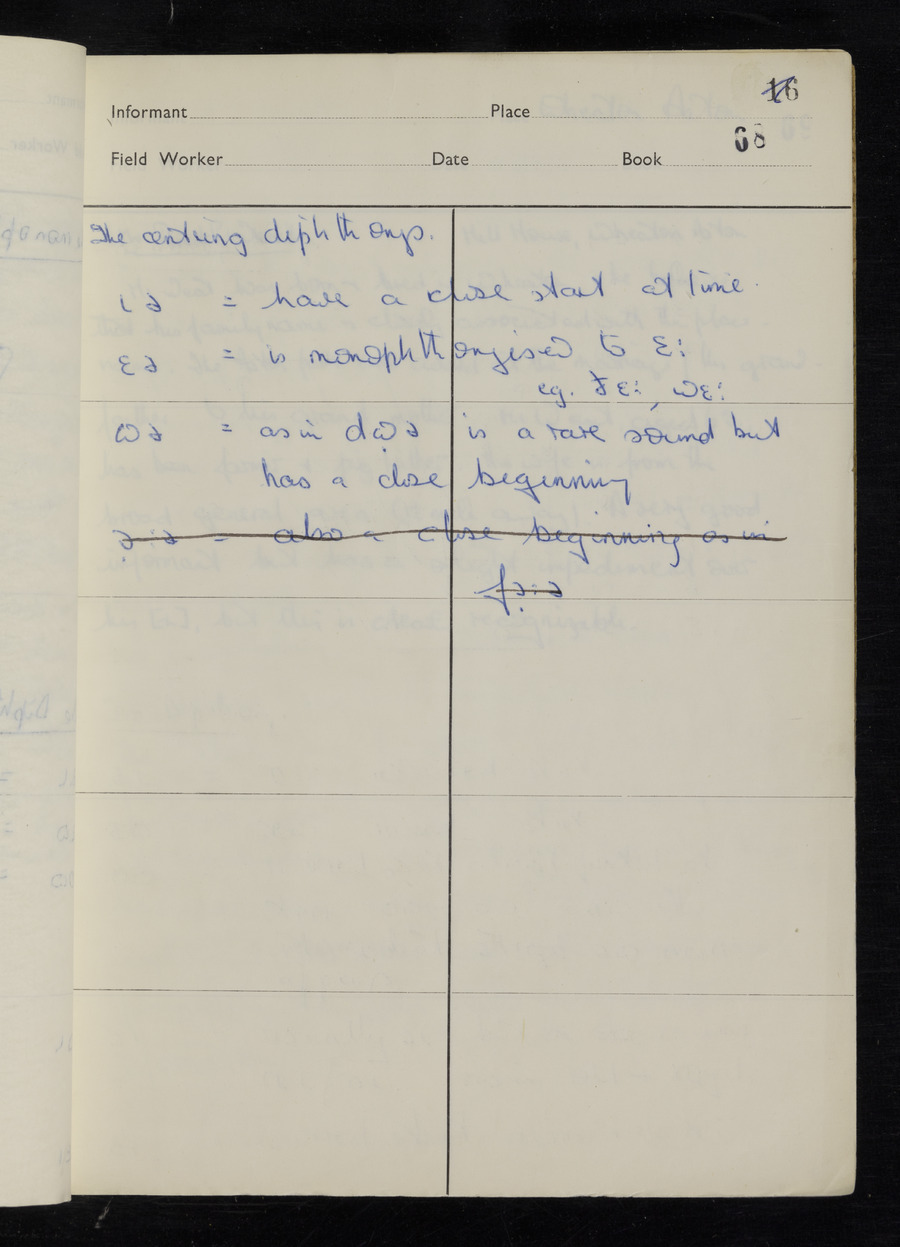 16
Informant Place
68
Field Worker Date Book
The centring diphthongs.
ɩə = have a close start at time.
ɛə = is monophthongised to ɛ:
eg. ðɛ:, wɛ:
ɷə = as in dɷ̣ə is a rare sound but
has a close beginning
ɔ̣:ə = also a close beginning as in
fɔ̣:ə